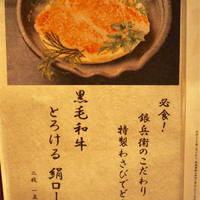 必食!
銀兵衛のこだわり
特製わさびでど
黒毛和牛
とろける 絹ロー
二枚 一五